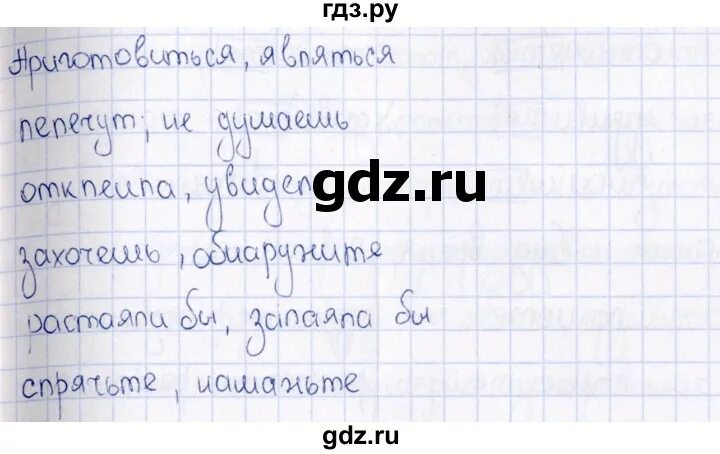 гдз.ру
Приготовиться, являться
лепечут, не думаешь
отклеила, увидел
gdz.ru
захочешь, обнаружите
растаяли бы, запаяла бы
спрячьте, намажьте
gdz.ru